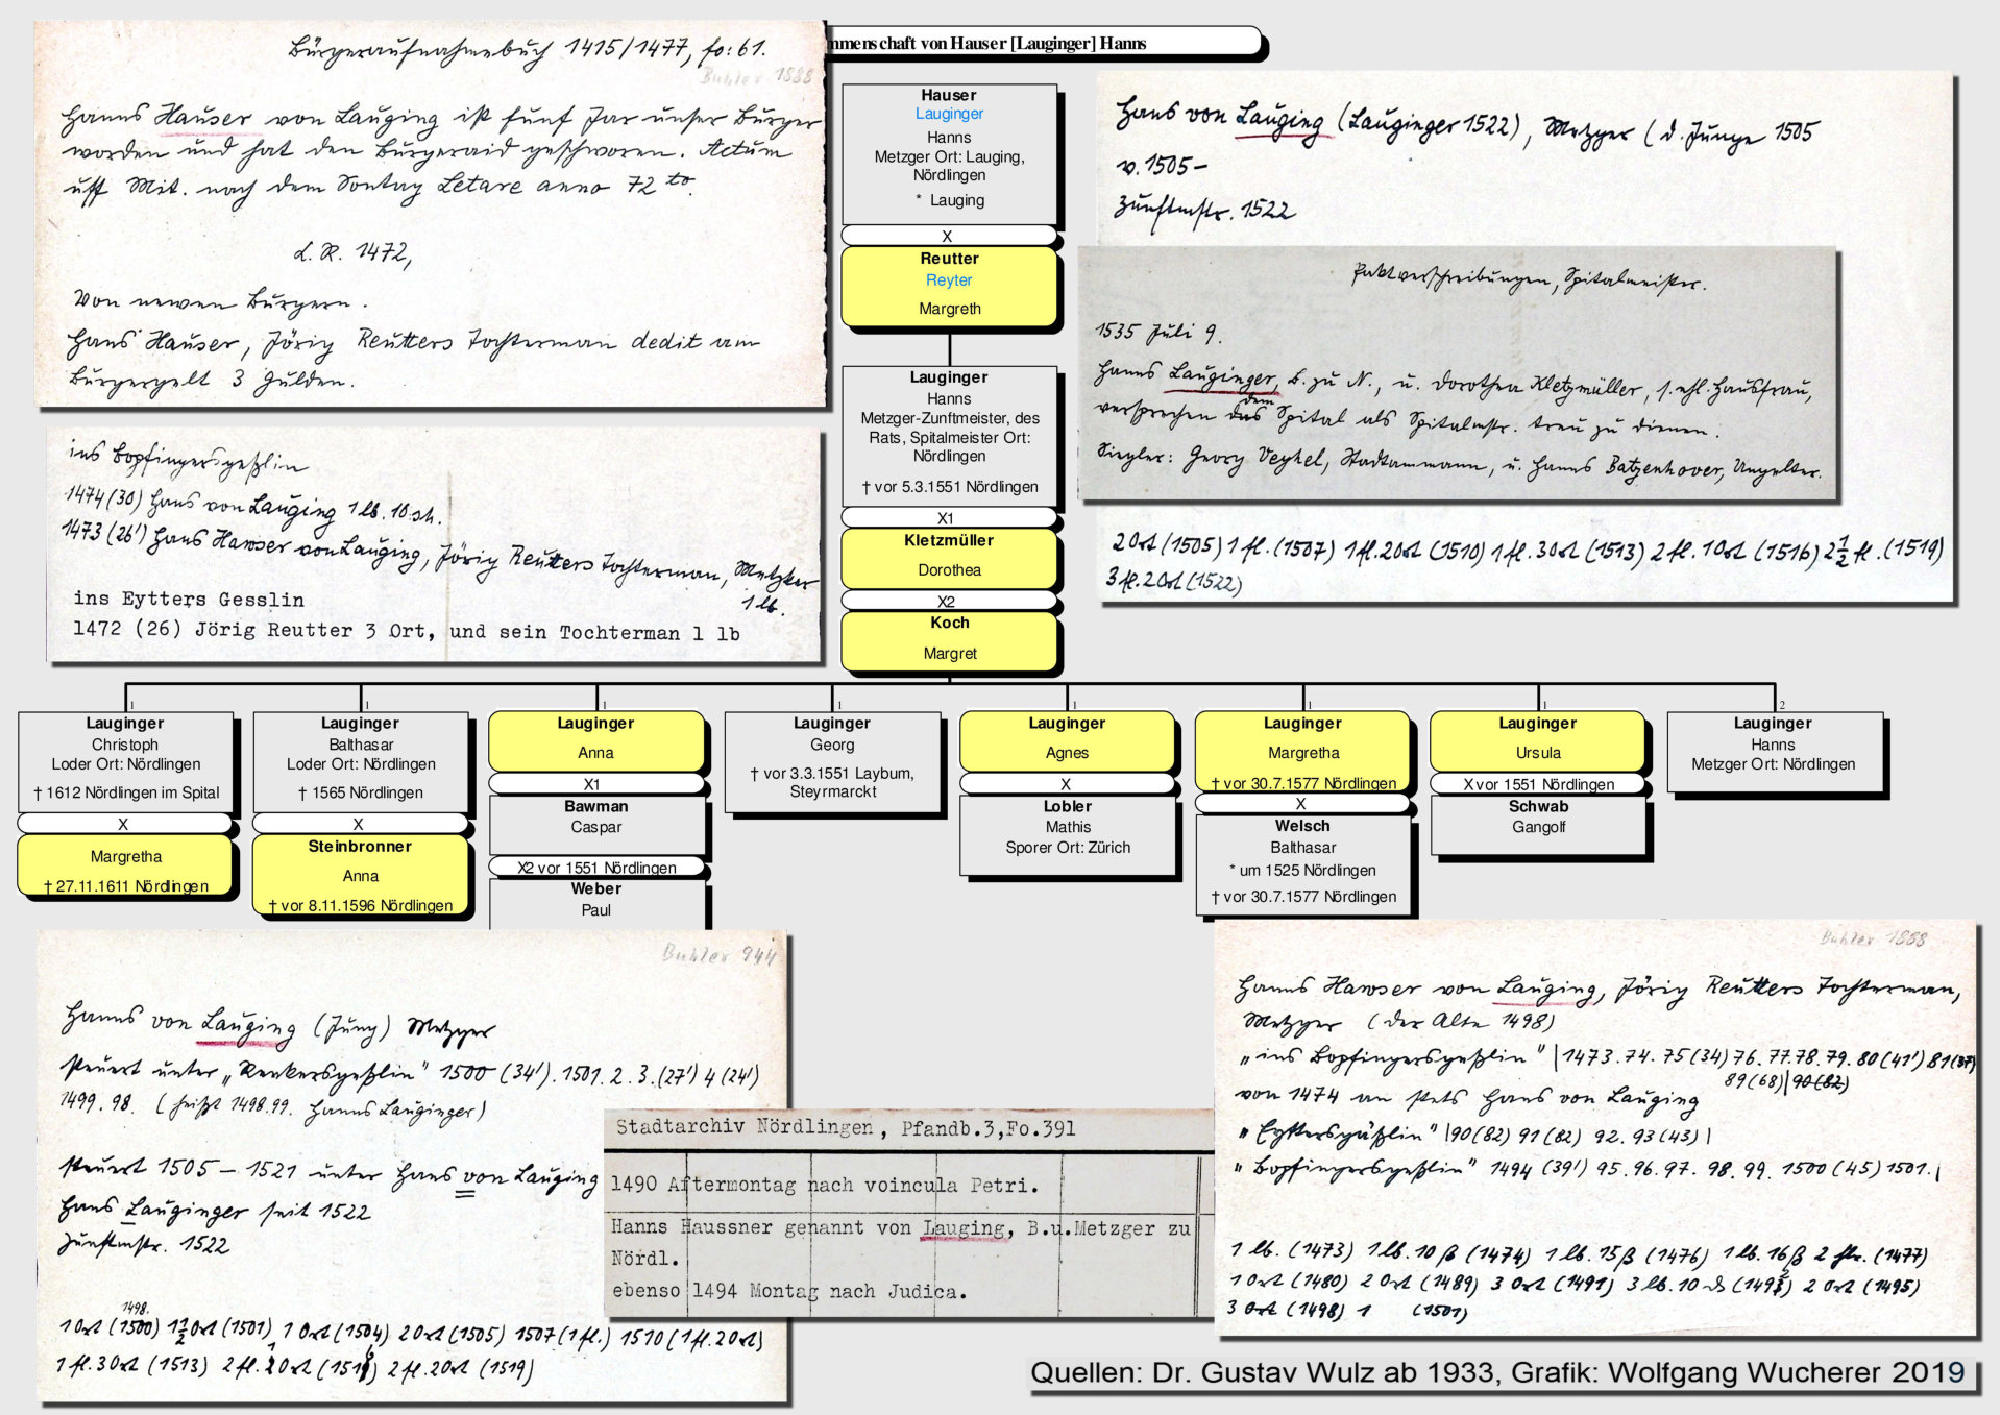 Bürgeraufnahmebuch 1415/1477, fo: 61.
Buhler 1888
Hanns Hauser von Lauging ist fünf Jar unser Bürger
worden und hat den Bürgeraid geschworen. Actum
uff Mit. nach dem Sontag Letare anno 72 to.
L. R. 1472,
Von newen Bürgern.
Hans Hauser, Jörig Reutters Tochterman dedit am
Bürgergelt 3 Gulden.
mmenschaft von Hauser [Lauginger] Hanns
Hauser
Lauginger
Hanns
Metzger Ort: Lauging,
Nördlingen
* Lauging
X
Reutter
Reyter
Margreth
Lauginger
Hanns
Metzger-Zunftmeister, des
Rats, Spitalmeister Ort:
Nördlingen
† vor 5.3.1551 Nördlingen
X1
Kletzmüller
Dorothea
X2
Koch
Margret
Hans von Lauging (Lauginger 1522), Metzger (d. Junge 1505
v. 1505-
Zunftmstr. 1522
Paktverschreibungen, Spitalmeister.
1535 Juli 9.
Hanns Lauginger, B. zu N., u. Dorothea Kletzmüller, s. ehl. Hausfrau,
versprechen dem Spital als Spitalmstr. treu zu dienen.
Siegler: Georg Veyhel, Stadtammann, u. Hanns Batzenhover, Ungelter.
2 Ort (1505) 1 fl. (1507) 1 fl. 2 Ort (1510) 1 fl. 3 Ort (1513) 2 fl. 1 Ort (1516) 2½ fl. (1519)
3 fl. 2 Ort (1522)
ins Bopfingergeßlin
1474 (30) Hans von Lauging 1 lb. 10 sh.
1473 (26') Hans Hawser von Lauging, Jörig Reutters Tochterman, Metzker
1 lb.
ins Eytters Gesslin
1472 (26) Jörig Reutter 3 Ort, und sein Tochterman 1 lb
Lauginger
Christoph
Loder Ort: Nördlingen
† 1612 Nördlingen im Spital
X
Margretha
† 27.11.1611 Nördlingen
1
Lauginger
Balthasar
Loder Ort: Nördlingen
† 1565 Nördlingen
X
Steinbronner
Anna
† vor 8.11.1596 Nördlingen
1
Lauginger
Anna
X1
Bawman
Caspar
X2 vor 1551 Nördlingen
Weber
Paul
1
Lauginger
Georg
† vor 3.3.1551 Laybum,
Steyrmarckt
1
Lauginger
Agnes
X
Lobler
Mathis
Sporer Ort: Zürich
1
Lauginger
Margretha
† vor 30.7.1577 Nördlingen
X
Welsch
Balthasar
* um 1525 Nördlingen
† vor 30.7.1577 Nördlingen
1
Lauginger
Ursula
X vor 1551 Nördlingen
Schwab
Gangolf
2
Lauginger
Hanns
Metzger Ort: Nördlingen
Buhler 944
Hanns von Lauging (Jung) Metzger
steuert unter „ 1500 (34'). 1501. 2. 3. (27') 4 (24')
1499. 98. (heißt 1498.99. Hanns Lauginger)
steuert 1505 – 1521 unter Hans von Lauging
Hans Lauginger seit 1522
Zunftmstr. 1522
1498.
1 Ort (1500) 1½ Ort (1501) 1 Ort (1504) 2 Ort (1505) 1507 (1 fl.) 1510 (1 fl. 2 Ort)
1 fl. 3 Ort (1513) 2 fl. 2 Ort (1519)
Stadtarchiv Nördlingen, Pfandb.3,Fo.391
1490 Aftermontag nach voincula Petri.
Hanns Haussner genannt von Lauging, B.u.Metzger zu
Nördl.
ebenso 1494 Montag nach Judica.
Buhler 1888
Hanns Hawser von Lauging, Jörig Reutters Tochterman,
Metzger (der Alte 1498)
„ins Bopfingergeßlin" | 1473. 74. 75 (34) 76. 77. 78. 79. 80 (41') 81 (37)
89 (68) | 90 (82)
von 1474 an stets Hans von Lauging
„Eyttersgäßlin" | 90 (82) 91 (82) 92. 93 (43) |
„Bopfingergeßlin" 1494 (39') 95. 96. 97. 98. 99. 1500 (45) 1501. |
1 lb. (1473) 1 lb. 10 ß (1474) 1 lb. 15 ß (1476) 1 lb. 16 ß (1477)
1 Ort (1480) 2 Ort (1489) 3 Ort (1491) 3 lb. 10 2 Ort (1495)
3 Ort (1498) 1 (1501)
Quellen: Dr. Gustav Wulz ab 1933, Grafik: Wolfgang Wucherer 2019